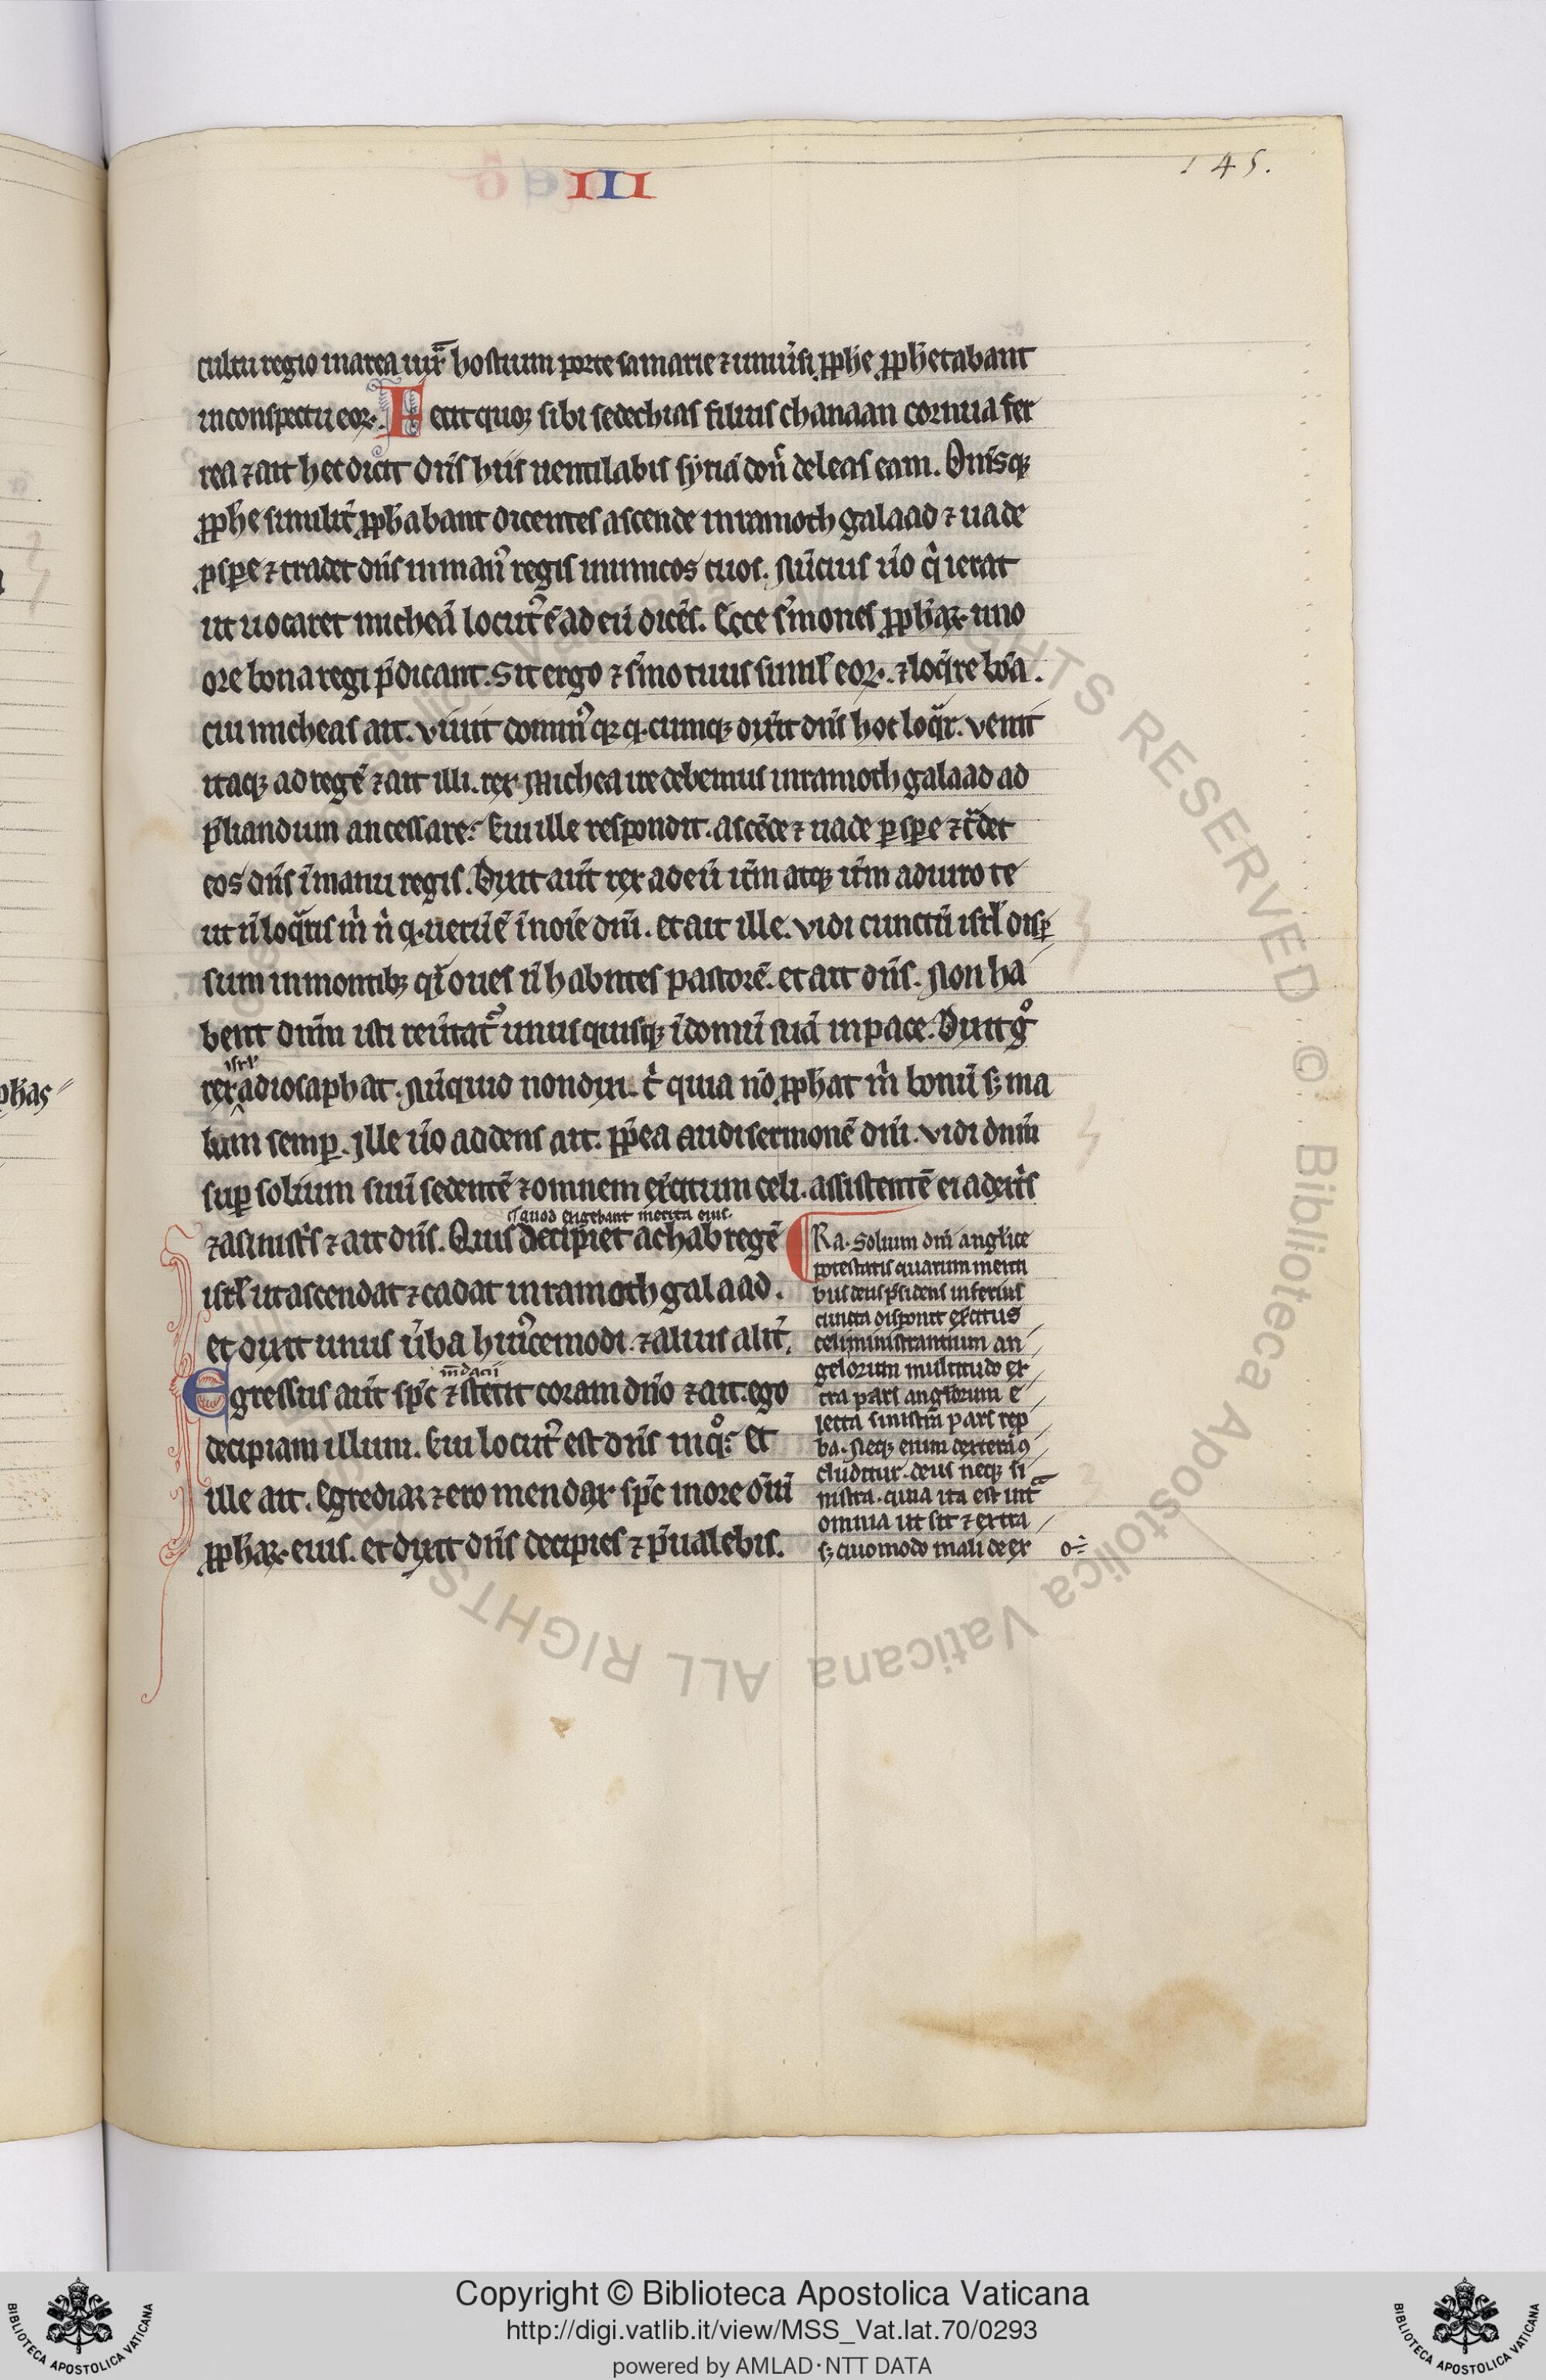 III
145.
cultu regio in area iuxͣ hostium porte samarie ⁊ uniuͥsi ꝓphe ꝓph̃etabant
in conspectu eoꝝ. Fecit quoqꝫ sibi sedechias filius chanaan cornua fer
rea ⁊ ait hec dicit dñs hiis uentilabis syriã doñ deleas eam. Omĩsqꝫ
ꝓphe similit̃ ꝓph̃abant dicentes ascende in ramoth galaad ⁊ uade
ꝓspe ⁊ tradet dñs in manꝰ regis inimicos tuos. Nũcius ũo qͥ ierat
ut uocaret micheã locutꝰ ẽ ad eũ dicẽs. Ecce s̃mones ꝓph̃aꝝ uno
ore bona regi p̃dicant. Sit ergo ⁊ s̃mo tuus simil̃ eoꝝ. ⁊ loq̃re bõa.
cui micheas ait. Viuit dominꝰ qꝛ q̃cumqꝫ dix̃it dñs hoc loq̃r. Venit
itaqꝫ ad regẽ ⁊ ait illi. rex. Michea ire debemus in ramoth galaad ad
p̃liandum an cessare? Cui ille respondit. ascẽde ⁊ uade ꝓspe ⁊ tͣdet
eos dñs ĩ manu regis. Dixit aũt rex ad eũ itm̃ atqꝫ itm̃ adiuro te
ut ñ loq̃ris m̃ n̂ q̃ uerũ ẽ ĩ noĩe dñi. et ait ille. Vidi cunctũ isrl̃ disꝑ
sum in montibꝫ qͣi oues ñ habñtes pastorẽ. et ait dñs. Non ha
bent dñm isti reũtatꝰ unusquisqꝫ ĩ domũ suã in pace. Dixit gͦ
isrl̃
rex ad iosaphat. Nũquid non dixi t̃ quia nõ ꝓph̃at m̃ bonũ sꝫ ma
lum semꝑ. Ille ũo addens ait. ꝓp̃ea audi sermonẽ dñi. Vidi dñm
suꝑ solium suũ sedentẽ ⁊ omnem ex̃citum celi. assistentẽ ei a dext̃s
quod exigebant merita eius.
⁊ a sinist̃s ⁊ ait dñs. Quis decipiet achab regẽ
isrl̃ ut ascendat ⁊ cadat in ramoth galaad.
et dixit unus ũba huiꝰcemodi. ⁊ alius alit̃.
m̃dacii
Egressus aũt sp̃c ⁊ stetit coram dño ⁊ ait. ego
decipiam illum. Cui locutꝰ est dñs in qͦ? Et
ille ait. Egrediar ⁊ ero mendax sp̃c in ore oĩũ
ꝓph̃aꝝ eius. et dixit dñs decipies ⁊ p̃ualebis.
Ra. Solium dñi anglice
potestatis quarum meriti
bus deus p̃sidens inferius
cuncta disponit ex̃citus
celi ministrantium an
gelorum multitudo ex
tra pars angl̃orum e
lecta sinistra pars rep̃
ba. Neqꝫ enim dexter
cluditur deus neqꝫ si
nistra. quia ita est int͂
omnia ut sit ⁊ extra
sꝫ quomodo mali de ex
phas
Copyright © Biblioteca Apostolica Vaticana
http://digi.vatlib.it/view/MSS_Vat.lat.70/0293
powered by AMLAD·NTT DATA
BIBLIOTECA APOSTOLICA VATICANA
BIBLIOTECA APOSTOLICA VATICANA
© Biblioteca Apostolica Vaticana ALL RIGHTS RESERVED